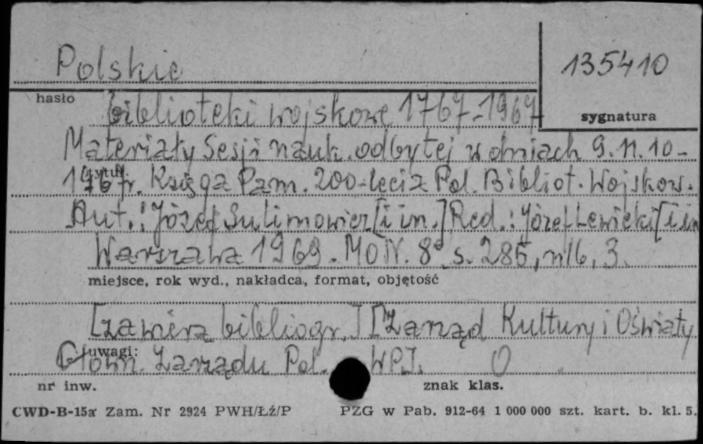 Polskie
135410
hasło
sygnatura
biblioteki wojskowe 1767-1967
Materiały Sesji nauk. odbytej w dniach 9.11.10-
tytuł
1967r. Księga Pam. 200-lecia Pol. Bibliot. Wojskow.
Aut.: Józef Sulimowicz [i in.] Red.: Józef Lewicki [i in
Warszawa 1969. MON. 8° s. 285, 3.
miejsce, rok wyd., nakładca, format, objętość
[zawiera bibliogr.] [Zarząd Kultury i Oświaty
uwagi:
Główn. Zarządu Pol. WPJ. O
nr inw.
znak klas.
CWD-B-15a Zam. Nr 2924 PWH/Łź/P
PZG w Pab. 912-64 1 000 000 szt. kart. b. kl. 5.